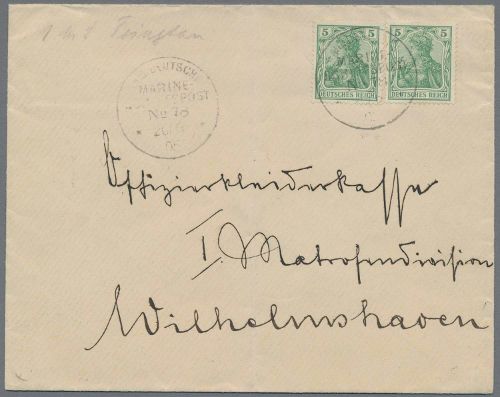 Tsingtau
5 5
DEUTSCHES REICH
5 5
DEUTSCHES REICH
DEUTSCHE
MARINE-
SCHIFFSPOST
No 75
Offizierkleiderkasse
I. Matrosendivision
Wilhelmshaven